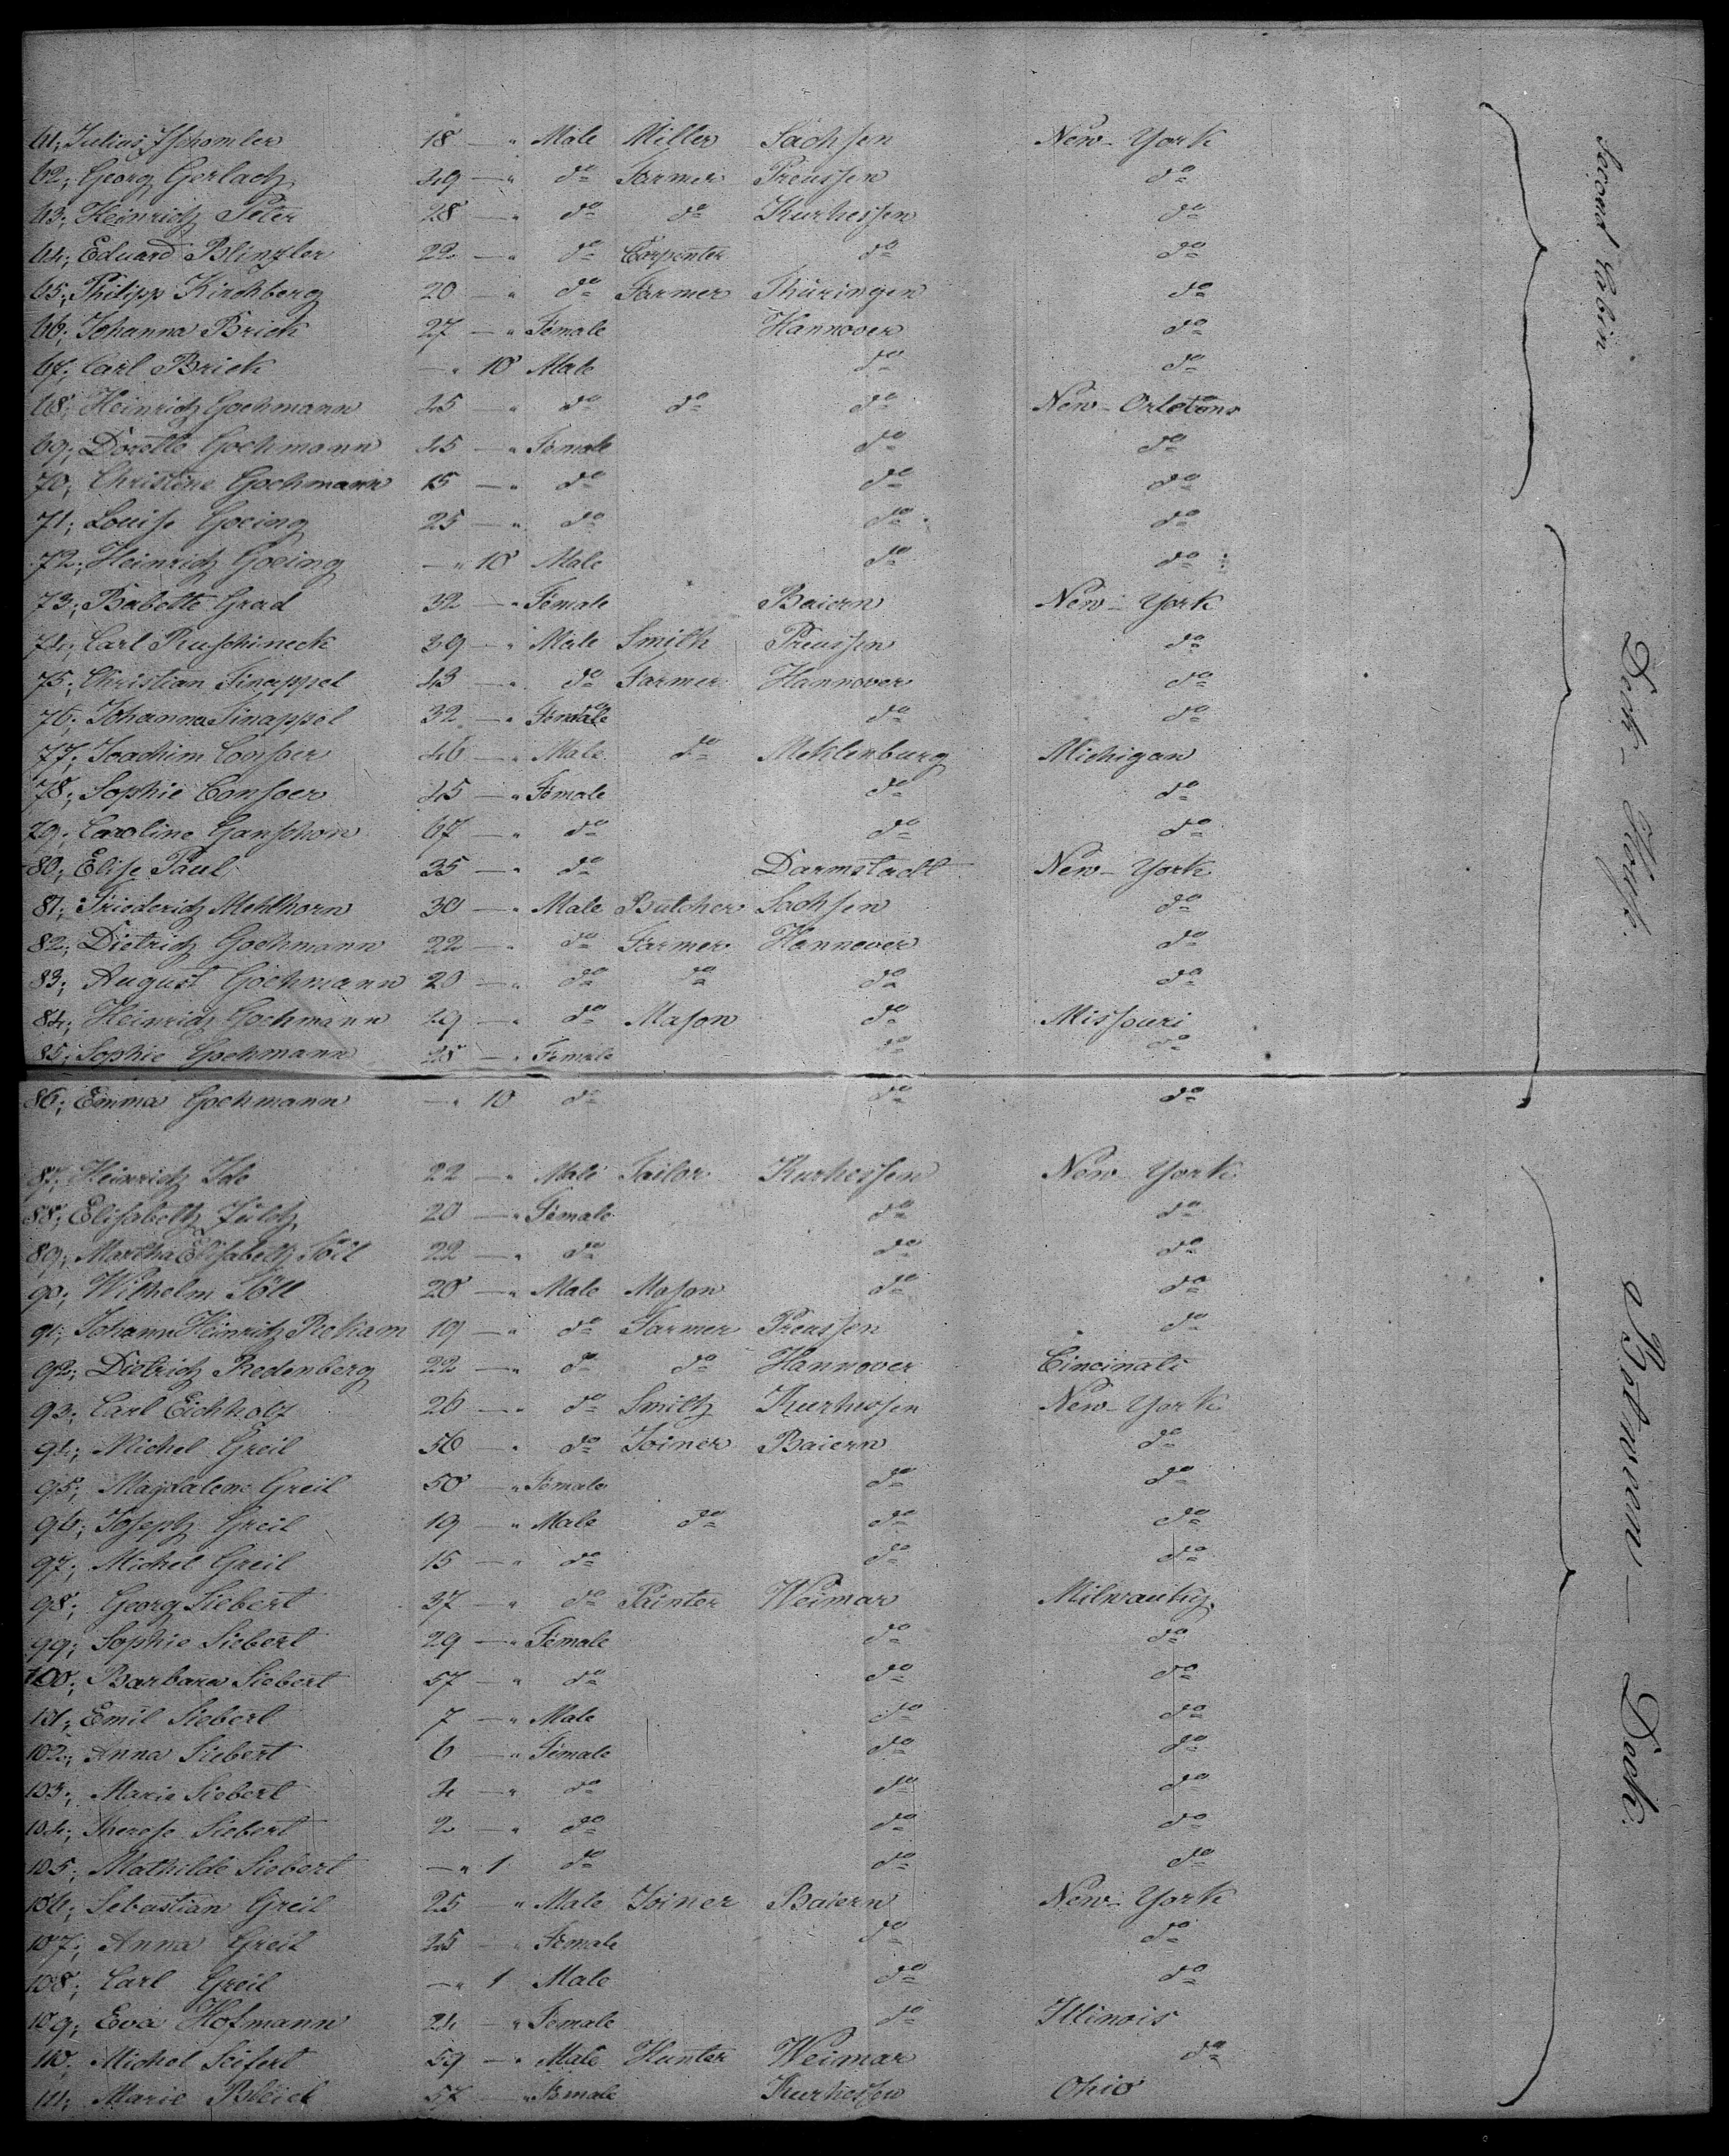 61; Julius Tschomler 18 — " Male Miller Sachsen New-York
62; Georg Gerlach 49 — " do Farmer Preussen do
63; Heinrich Peter 28 — " do do Kurhessen do
64; Eduard Blinzler 22 — " do Carpenter do do
65; Philipp Kirchberg 20 — " do Farmer Thüringen do
66; Johanna Brick 27 — " Female Hannover do
67; Carl Brick — " 10 Male do do
68; Heinrich Goehmann 45 " do do do New-Orleans
69; Dorette Goehmann 45 — " Female do do
70; Christine Goehmann 15 — " do do do
71; Louise Goeing 25 — " do do do
72; Heinrich Goeing — " 10 Male do do
73; Babette Grad 32 — " Female Baiern New-York
74; Carl Ruschineck 39 — " Male Smith Preussen do
75; Christian Sinappel 43 — " do Farmer Hannover do
76; Johanna Sinappel 32 — " Female do do
77; Joachim Consoer 46 — " Male do Meklenburg Michigan
78; Sophie Consoer 45 — " Female do do
79; Caroline Ganschon 67 — " do do do
80; Elise Paul 35 — " do Darmstadt New-York
81; Friederich Mehlhorn 30 — " Male Butcher Sachsen do
82; Dietrich Goehmann 22 — " do Farmer Hannover do
83; August Goehmann 20 — " do do do do
84; Heinrich Goehmann 29 — " do Mason do Missouri
85; Sophie Goehmann 28 — " Female do do
86; Emma Goehmann — " 10 do do do
87; Heinrich 22 — " Male Tailor Kurhessen New-York
88; Elisabeth Jülch 20 — " Female do do
89; Martha Elisabeth Söll 22 — " do do do
90; Wilhelm Söll 20 — " Male Mason do do
91; Johann Heinrich Rekam 19 — " do Farmer Preussen do
92; Dietrich Redenberg 22 — " do do Hannover Cincinati
93; Carl Eichholz 26 — " do Smith Kurhessen New-York
94; Michel Greil 56 " do Joiner Baiern do
95; Magdalene Greil 50 — " Female do do
96; Joseph Greil 19 — " Male do do do
97; Michel Greil 15 — " do do do
98; Georg Siebert 37 — " do Painter Weimar Milwauky
99; Sophie Siebert 29 — " Female do do
100; Barbara Siebert 57 — " do do do
101; Emil Siebert 7 — " Male do do
102; Anna Siebert 6 — " Female do do
103; Marie Siebert 4 — " do do do
104; Therese Siebert 2 — " do do do
105; Mathilde Siebert — " 1 do do do
106; Sebastian Greil 25 " Male Joiner Baiern New-York
107; Anna Greil 25 — " Female do do
108; Carl Greil — " 1 Male do do
109; Eva Hofmann 24 — " Female do Illinois
110; Michel Seifert 59 — " Male Hunter Weimar do
111; Marie 57 — " Female Kurhessen Ohio
Second Cabin
Deck-House.
Between-Deck.